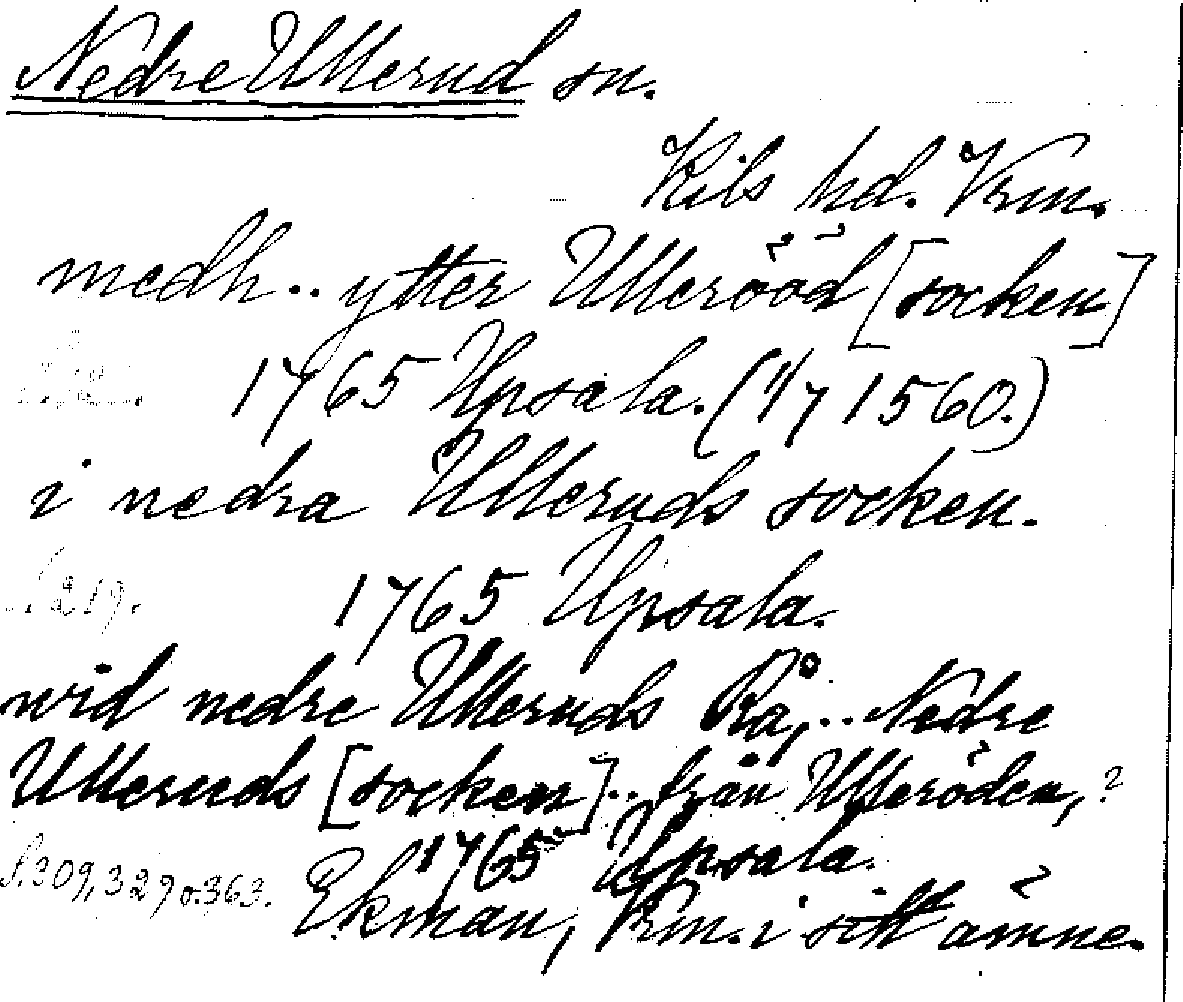 Nedre Ullerud sn.
Kils hd. Vrm.
medh.. ytter Ulleröd [socken]
1765 Upsala. (1/7 1560.)
i nedra Ulleruds socken.
S. 219. 1765 Upsala.
wid nedre Ulleruds Rå,.. Nedre
Ulleruds [socken].. från Ulleröden,?
1765 Upsala.
S. 309, 329 o. 363. Ekman, Vrm. i sitt ämne.